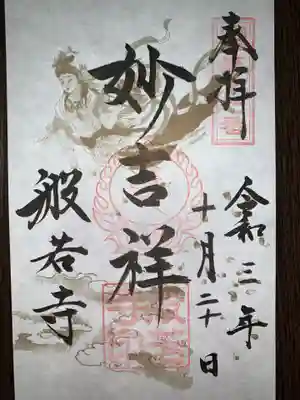 奉拝
令和三年
十月二十日
妙吉祥
般若寺